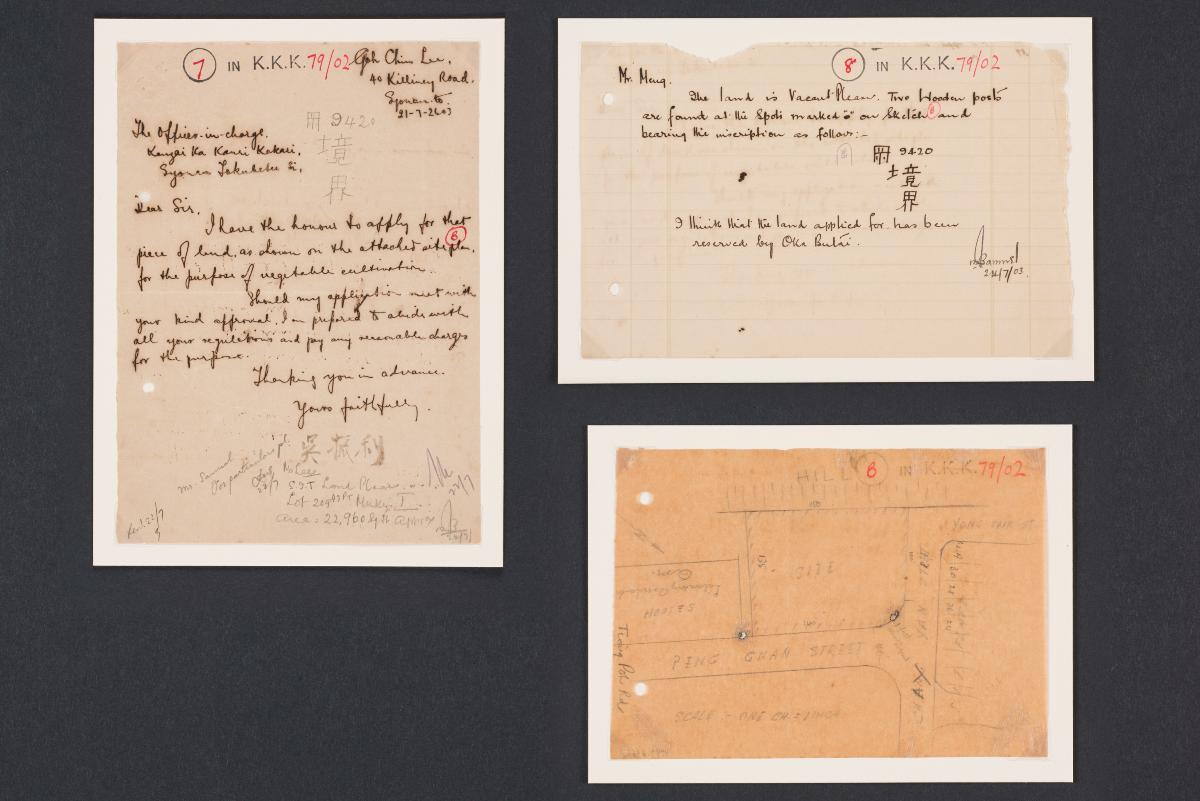 7 IN K.K.K. 79/02
Goh Chin Lee,
40 Killiney Road.
Syonan-to.
21-7-2603
The Officer-in-charge,
9420
境
界
Kanzai Ka Kanri Kakari,
Syonan Tokubetu Si,
Dear Sir,
I have the honour to apply for that
piece of land, as shown on the attached site plan,
8
for the purpose of vegetable cultivation.
Should my application meet with
your kind approval, I am prepared to abide with
all your regulations and pay any reasonable charges
for the purpose.
Thanking you in advance.
Yours faithfully,
吳振利
Mr. Samuel
For particulars pl.
22/7
S.I.T. Land Please.
Lot
Area = 22,960 sq ft approx
22/7
8 IN K.K.K. 79/02
Mr. Meng.
The land is vacant Please. Two wooden posts
are found at the spots marked on Sketch 8 and
bearing the inscription as follows:-
9420
境
界
I think that the land applied for has been
reserved by Oka Butai.
24/7/03.
8 IN K.K.K. 79/02
HILL
YONG SIAK ST
SITE
HOUSES
PENG GUAN STREET
Tiong Poh Rd
SCALE :- ONE CH. = 1 INCH